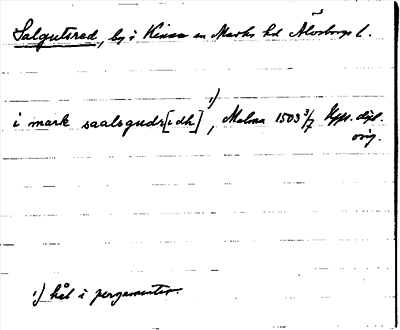 Salgutsred, by i Kinna sn Marks hd Älvsborgs l.
i mark saalsgudz[i dh] ¹), Malma 1503 3/7 Upps. dipl.
orig.
¹) hål i pergamentet.